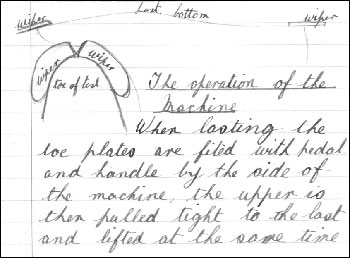 wiper Last bottom wiper
wiper wiper
toe of last
The operation of the
Machine
When lasting the
toe plates are fited with pedal
and handle by the side of
the machine, the upper is
then pulled tight to the last
and lifted at the same time